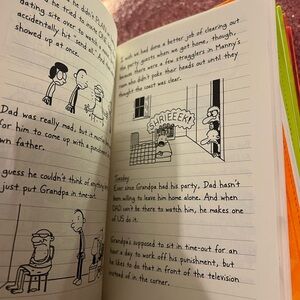 he didn't PLAN
dating site over to watch
tried to invite GR
accidentally hit "send all." And
showed up at once.
Dad was really mad, but it
for him to come up with a pun
own father.
guess he couldn't think of anything
just put Grandpa in time-out.
I wish we had done a better job of clearing out
the party guests when we got home, though,
because there were a few stragglers in Manny's
room who didn't poke their heads out until they
thought the coast was clear.
SHRIEEEK!
Tuesday
Ever since Grandpa had his party, Dad hasn't
been willing to leave him home alone. And when
DAD can't be there to watch him, he makes one
of US do it.
Grandpa's supposed to sit in time-out for an
hour a day to work off his punishment, but
he likes to do that in front of the television
instead of in the corner.